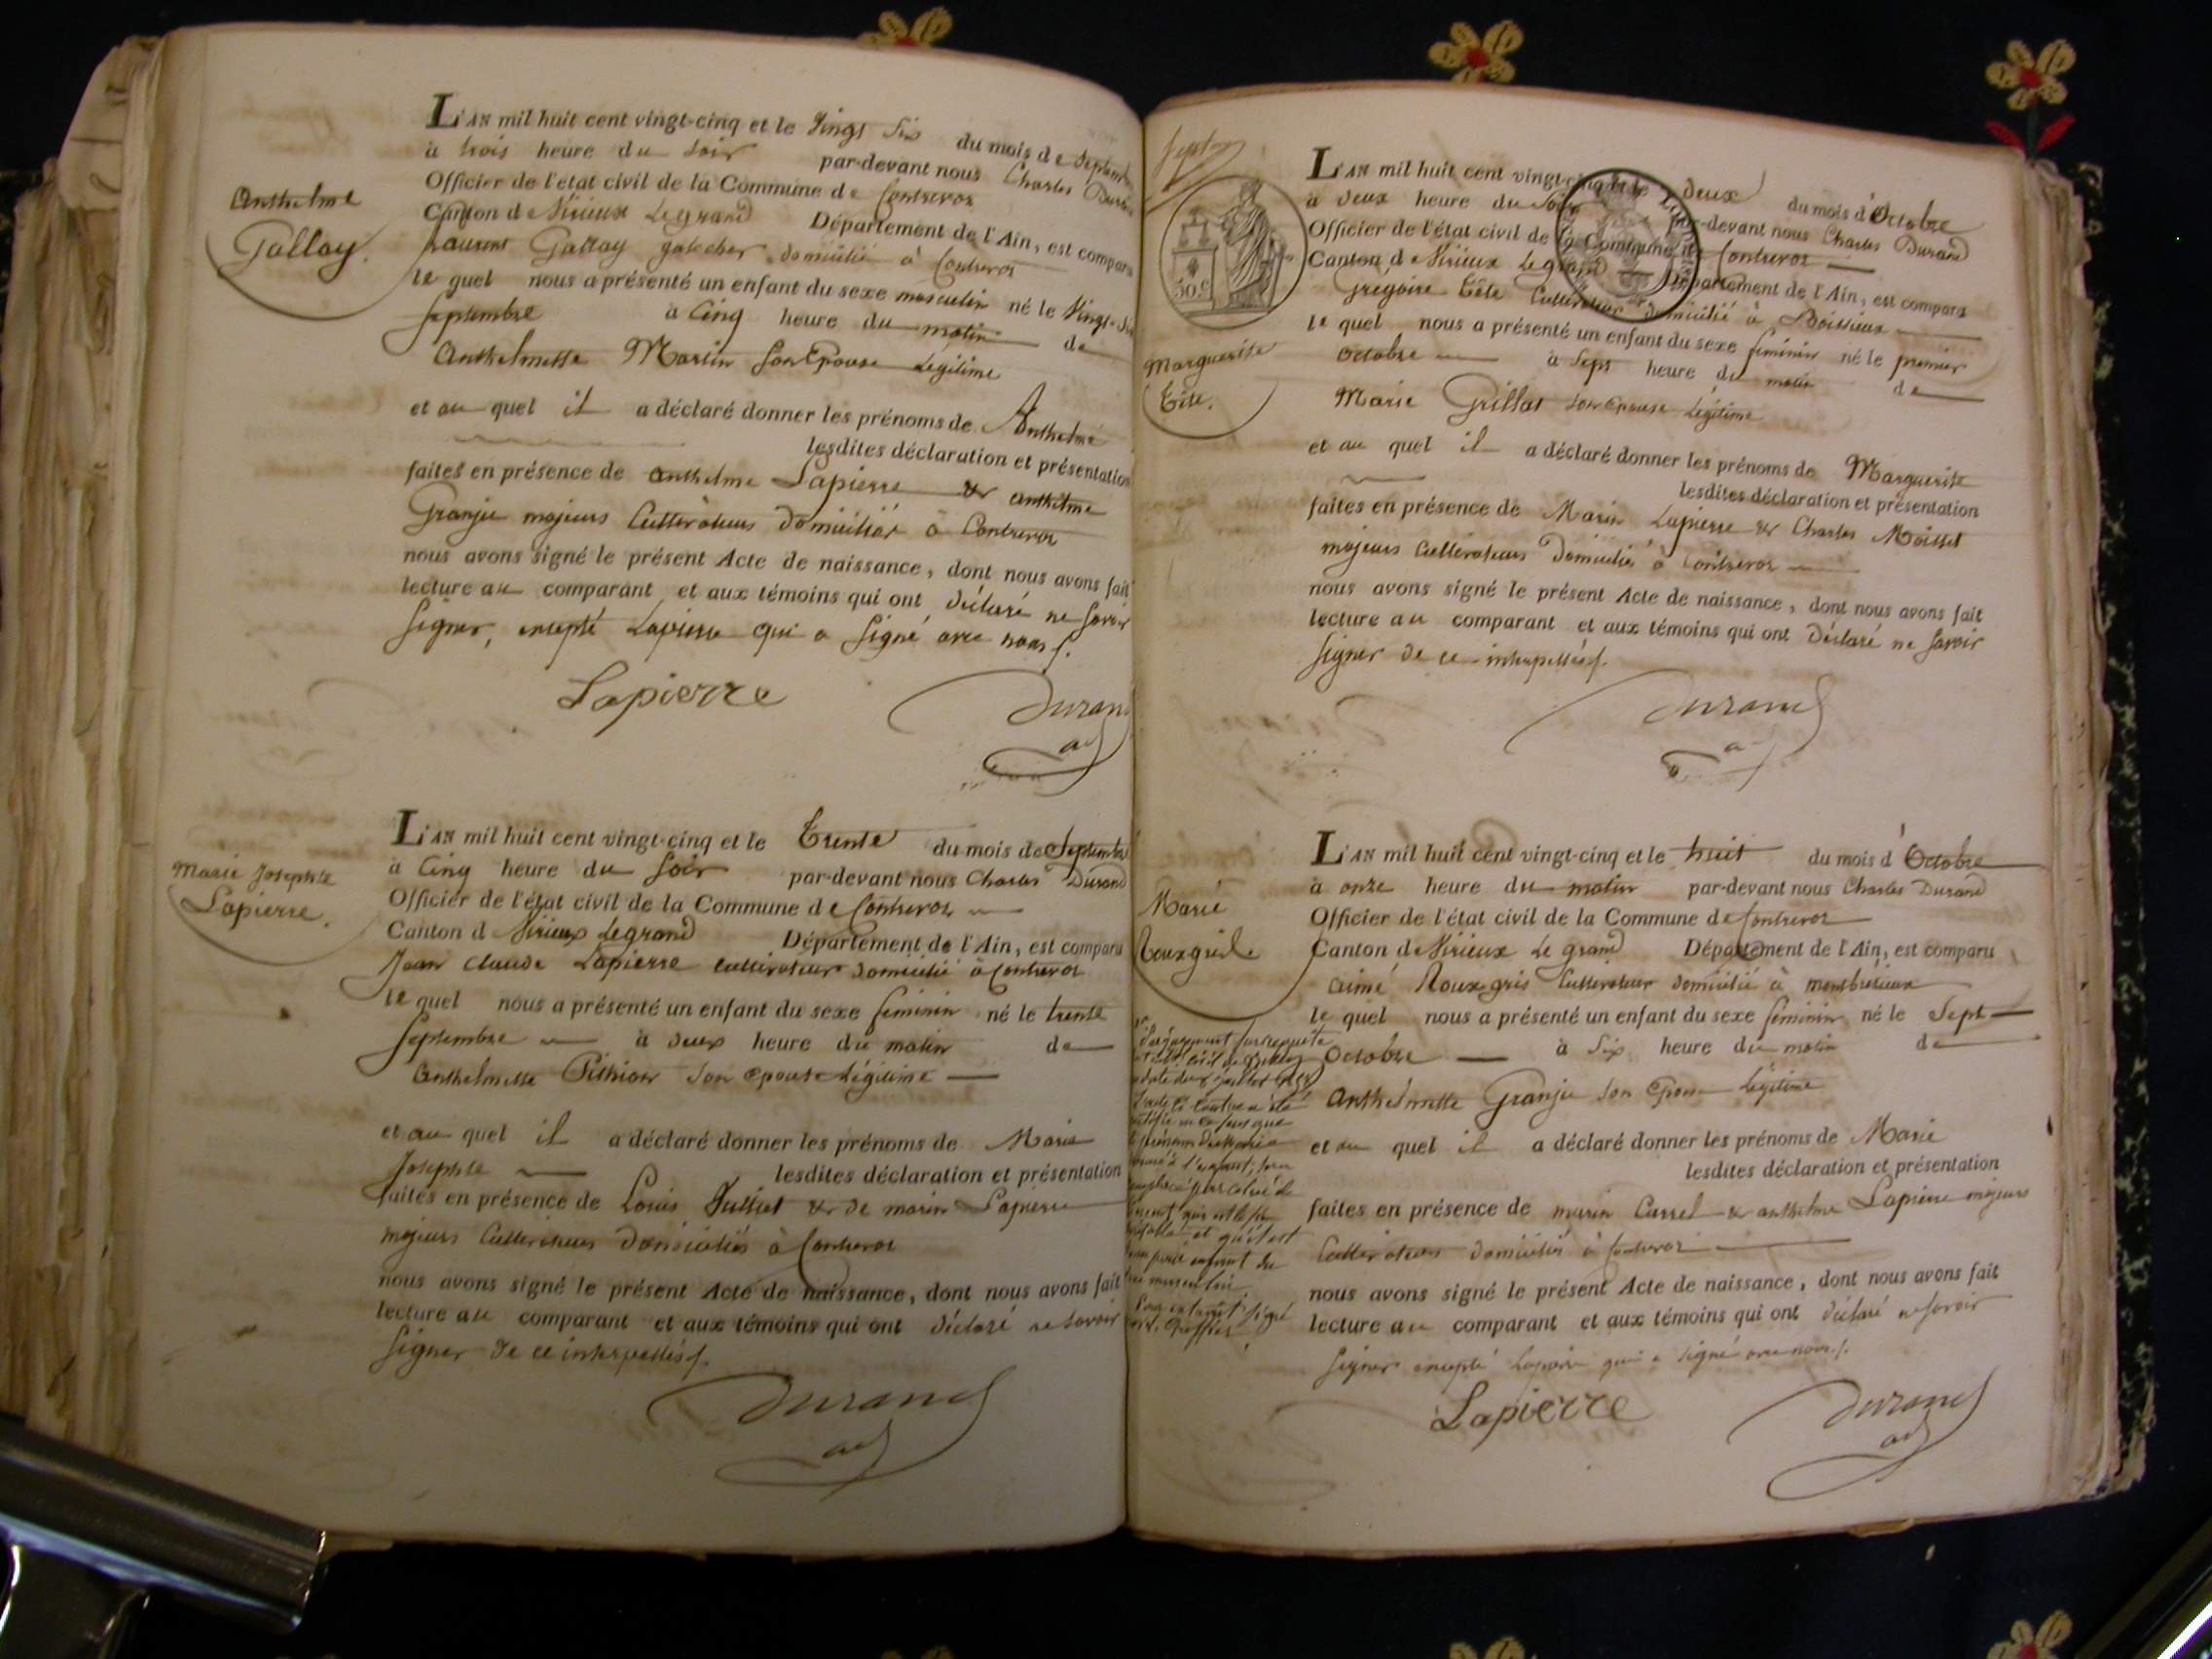 L'AN mil huit cent vingt-cinq et le Vingt Six du mois de Septemb
à trois heure du Soir par-devant nous Charles Dura
Officier de l'état civil de la Commune de Contrevoz
Canton de Virieux Legrand Département de l'Ain, est comparu
Anthelme
Gallay.
Laurent Gallay domicilié à Contrevoz
le quel nous a présenté un enfant du sexe masculin né le Vingt-Six
Septembre à Cinq heure du matin de
Anthelmette Martin Son Epouse Légitime
et au quel il a déclaré donner les prénoms de Anthelme
lesdites déclaration et présentation
faites en présence de Anthelme Lapierre & anthelme
Granju majeurs Cultivateurs Domiciliés à Contrevoz
nous avons signé le présent Acte de naissance, dont nous avons fait
lecture au comparant et aux témoins qui ont déclaré ne Savoir
Signer, excepté Lapierre qui a Signé avec nous
Lapierre
Duran
L'AN mil huit cent vingt-cinq et le Trente du mois de Septembre
à Cinq heure du Soir par-devant nous Charles Durand
Officier de l'état civil de la Commune de Contrevoz
Canton d Virieux Legrand Département de l'Ain, est comparu
Marie Josephte
Lapierre.
Jean Claude Lapierre cultivateur domicilié à Contrevoz
le quel nous a présenté un enfant du sexe feminin né le trente
Septembre à deux heure du matin de
Anthelmette Pithion Son epouse Légitime
et au quel il a déclaré donner les prénoms de Marie
Josephte lesdites déclaration et présentation
faites en présence de Louis Julliet & de marin Lapierre
majeurs Cultivateurs Domiciliés à Contrevoz
nous avons signé le présent Acte de naissance, dont nous avons fait
lecture au comparant et aux témoins qui ont déclaré ne Savoir
Signer de ce interpellés
Durand
50.c
L'AN mil huit cent vingt-cinq et le deux du mois d'Octobre
à deux heure du Soir par-devant nous Charles Durand
Officier de l'état civil de la Commune de Contrevoz
Canton de Virieux Legrand Département de l'Ain, est comparu
Grégoire Tête Cultivateur domicilié à Boissieux
le quel nous a présenté un enfant du sexe feminin né le premier
Octobre à Sept heure du matin de
Marguerite
Tête.
Marie Grillat Son epouse Légitime
et au quel il a déclaré donner les prénoms de Marguerite
lesdites déclaration et présentation
faites en présence de Marin Lapierre & Charles Moissel
majeurs Cultivateurs Domiciliés à Contrevoz
nous avons signé le présent Acte de naissance, dont nous avons fait
lecture au comparant et aux témoins qui ont Déclaré ne Savoir
Signer de ce interpellés
Durand
L'AN mil huit cent vingt-cinq et le huit du mois d'Octobre
à onze heure du matin par-devant nous Charles Durand
Officier de l'état civil de la Commune de Contrevoz
Canton de Virieux Le grand Département de l'Ain, est comparu
Marie
Aimé Roux-gris Cultivateur domicilié à
le quel nous a présenté un enfant du sexe feminin né le Sept
Octobre à Six heure du matin de
Anthelmette Granju Son Epouse Légitime
et au quel il a déclaré donner les prénoms de Marie
lesdites déclaration et présentation
faites en présence de marin Carrel & anthelme Lapierre majeurs
Cultivateurs domiciliés à Contrevoz
nous avons signé le présent Acte de naissance, dont nous avons fait
lecture au comparant et aux témoins qui ont déclaré ne Savoir
Signer excepté Lapierre qui a Signé avec nous
Lapierre
Durand